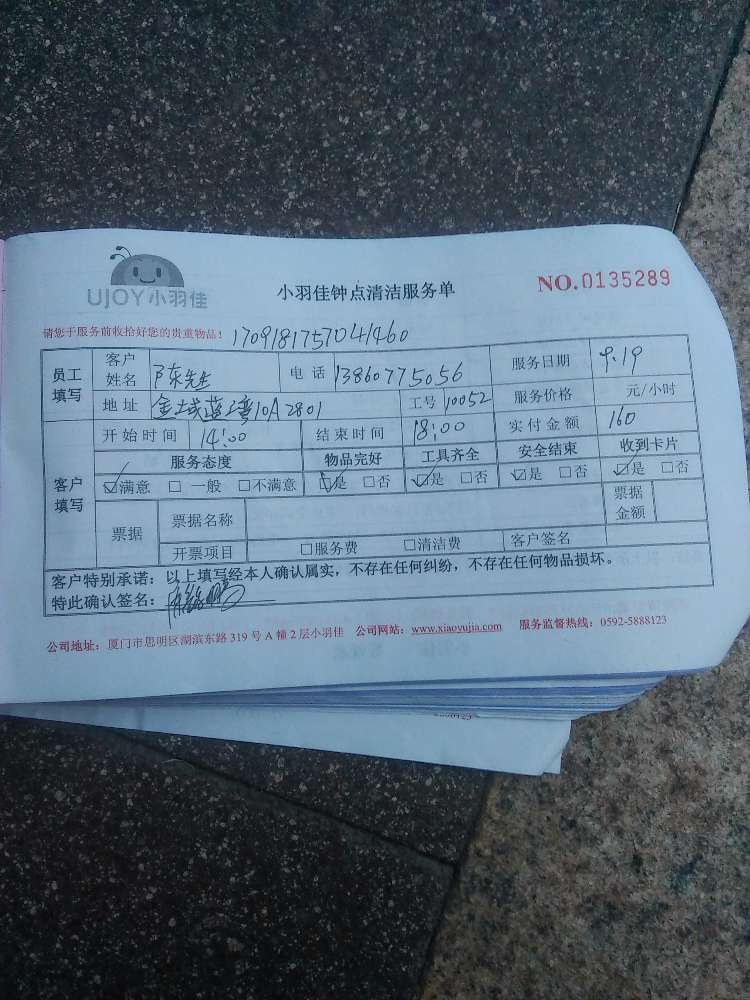 UJOY小羽佳
小羽佳钟点清洁服务单
NO.0135289
请您于服务前收拾好您的贵重物品! 1709181757041460
员工填写 客户姓名 陈先生 电话 13860775056 服务日期 9.19
地址 金域蓝湾10A2801 工号 10052 服务价格 元/小时
客户填写 开始时间 14:00 结束时间 18:00 实付金额 160
服务态度 物品完好 工具齐全 安全结束 收到卡片
☑满意 □一般 □不满意 ☑是 □否 ☑是 □否 ☑是 □否 ☑是 □否
票据 票据名称 票据金额
开票项目 □服务费 □清洁费 客户签名
客户特别承诺：以上填写经本人确认属实，不存在任何纠纷，不存在任何物品损坏。
特此确认签名：
公司地址：厦门市思明区湖滨东路 319 号 A 幢 2 层小羽佳 公司网站：www.xiaoyujia.com 服务监督热线：0592-5888123